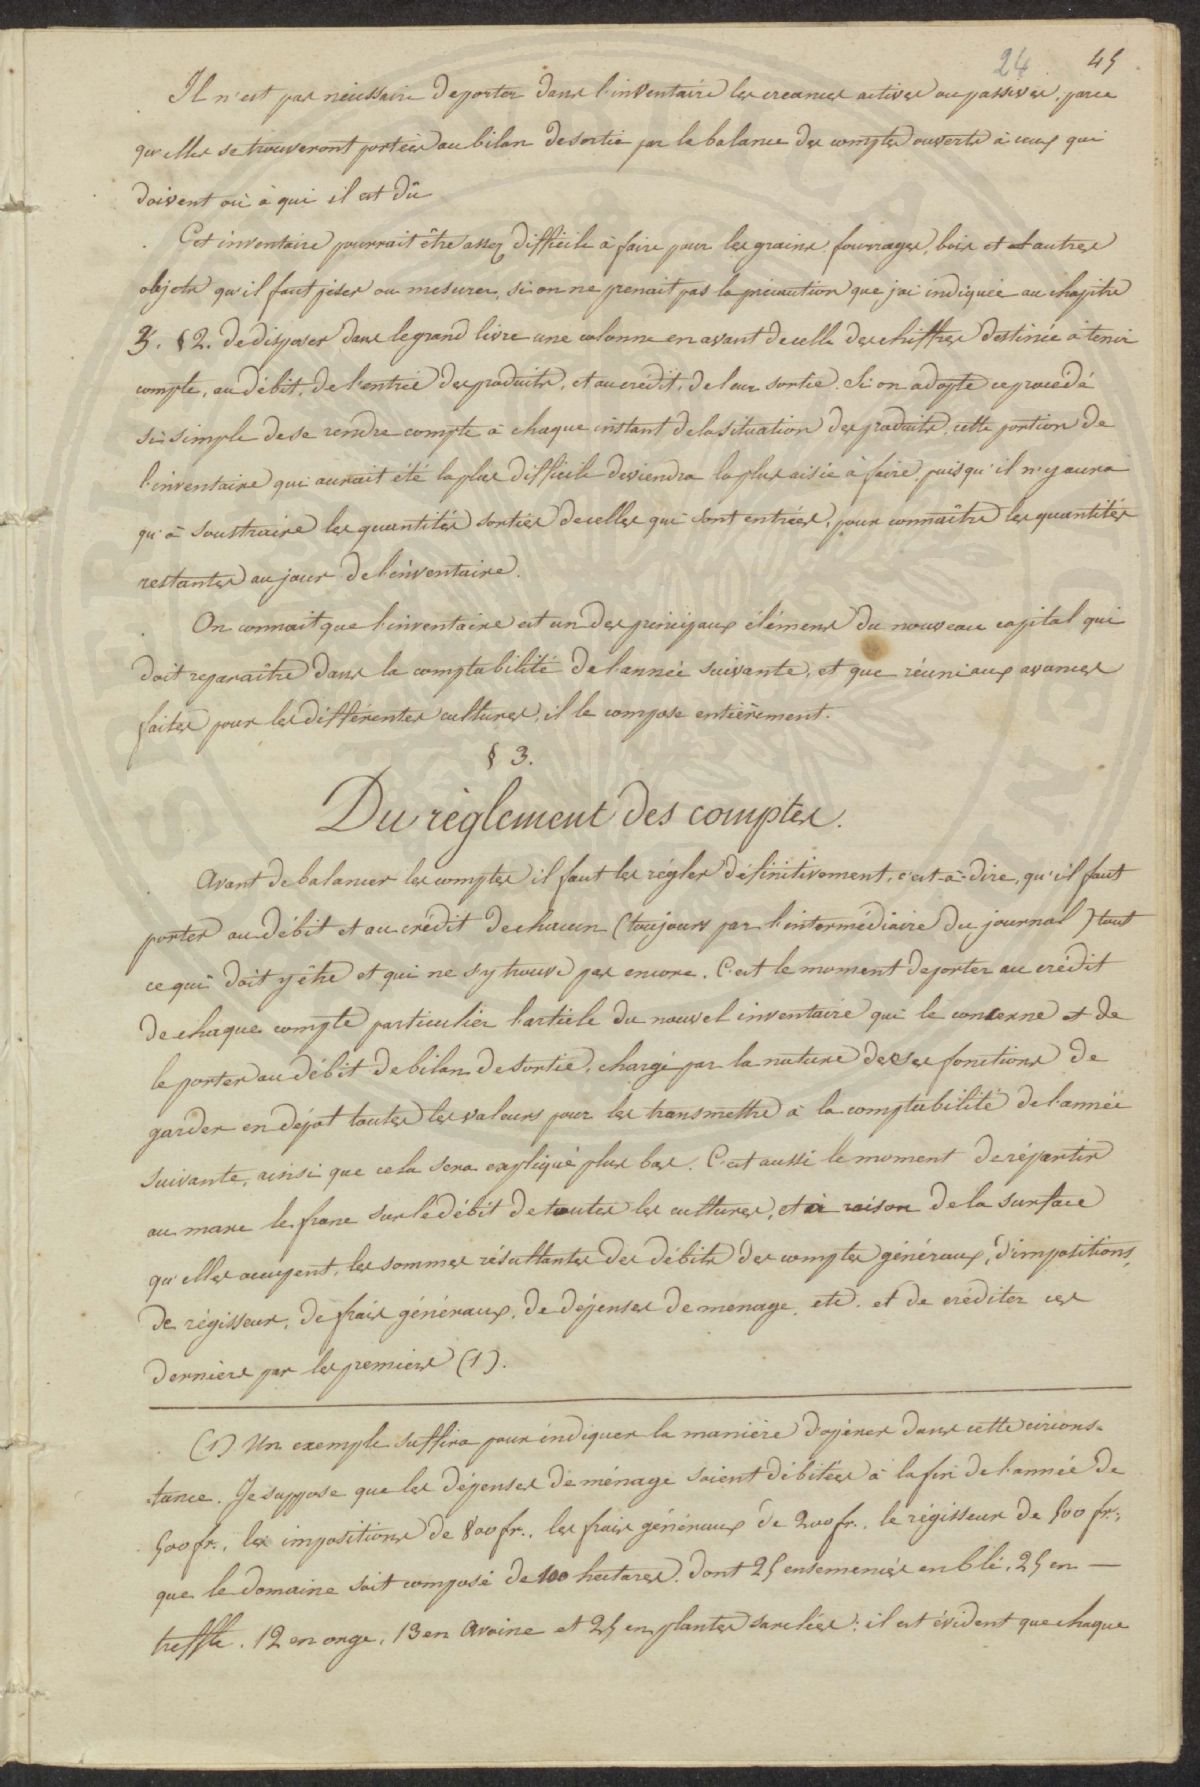 24 45
Il n'est pas nécessaire de porter dans l'inventaire les créances actives ou passives, parce
qu'elles se trouveront portées au bilan de sortie par la balance des comptes ouverts à ceux qui
doivent ou à qui il est dû
Cet inventaire pourrait être assez difficile à faire pour les grains, fourrages, bois et d'autres
objets qu'il faut peser ou mesurer, si on ne prenait pas la précaution que j'ai indiquée au chapitre
3. § 2. de disposer dans le grand livre une colonne en avant de celle des chiffres destinée à tenir
compte, au débit, de l'entrée des produits, et au crédit, de leur sortie. Si on adopte ce procédé
si simple de se rendre compte à chaque instant de la situation des produits, cette portion de
l'inventaire qui aurait été la plus difficile deviendra la plus aisée à faire puisqu'il n'y aura
qu'à soustraire les quantités sorties de celles qui sont entrées, pour connaître les quantités
restantes au jour de l'inventaire.
On connait que l'inventaire est un des principaux élémens du nouveau capital qui
doit reparaître dans la comptabilité de l'année suivante, et que réuni aux avances
faites pour les différentes cultures, il le compose entièrement.
§ 3.
Du règlement des comptes.
Avant de balancer les comptes il faut les régler définitivement, c'est-à-dire, qu'il faut
porter au débit et au crédit de chacun (toujours par l'intermédiaire du journal) tout
ce qui doit y être et qui ne s'y trouve pas encore. C'est le moment de porter au crédit
de chaque compte particulier l'article du nouvel inventaire qui le concerne et de
le porter au débit de bilan de sortie, chargé par la nature de ses fonctions de
garder en dépôt toutes les valeurs pour les transmettre à la comptabilité de l'année
suivante, ainsi que cela sera expliqué plus bas. C'est aussi le moment de répartir
au marc le franc sur le débit de toutes les cultures, et à raison de la surface
qu'elles occupent, les sommes résultantes des débits des comptes généraux, d'impositions,
de régisseur, de frais généraux, de dépenses de menage, etc. et de créditer ces
derniers par les premiers (1).
(1) Un exemple suffira pour indiquer la manière d'opérer dans cette circons-
tance. Je suppose que les dépenses de ménage soient débitées à la fin de l'année de
500 fr., les impositions de 800 fr., les frais généraux de 200 fr., le régisseur de 500 fr.,
que le domaine soit composé de 100 hectares. dont 25 ensemencés en blé, 25 en —
treffle, 12 en orge, 13 en avoine et 25 en plantes sarclées; il est évident que chaque